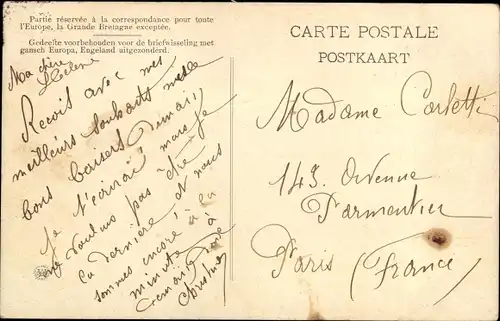 Partie réservée à la correspondance pour toute
l'Europe, la Grande Bretagne exceptée.
Gedeelte voorbehouden voor de briefwisseling met
gansch Europa, Engeland uitgezonderd.
Ma chère
Hélène
Reçois avec mes
meilleurs souhaits mille
bons baisers Demain
je t'écrirai mais je
ne voulus pas être
la dernière et nous
sommes encore à la
minute à
CARTE POSTALE
POSTKAART
Madame Carletti
143. Avenue
Parmentier
Paris (France)